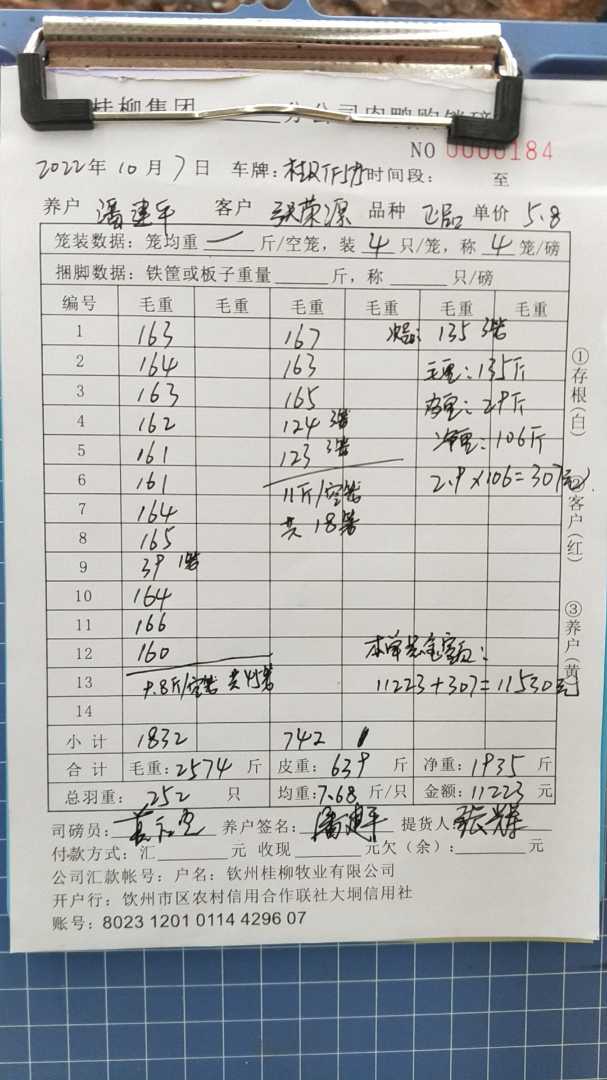 桂柳集团 分公司肉鸭购销磅
NO 0000184
2022年10月7日 车牌: 时间段: 至
养户 潘建平 客户 张荣源 品种 单价 5.8
笼装数据: 笼均重 一 斤/空笼, 装 4 只/笼, 称 4 笼/磅
捆脚数据: 铁筐或板子重量 斤, 称 只/磅
编号 毛重 毛重 毛重 毛重 毛重 毛重
1 163 167 次品: 135 3笼
2 164 163 毛重: 135斤
3 163 165 皮重: 29斤
4 162 124 3笼 净重: 106斤
5 161 123 3笼
6 161 11斤/空笼 2.9×106=307元
7 164 共18笼
8 165
9 39 1笼
10 164
11 166
12 160 本单总金额:
13 9.8斤/空笼 共45笼 11223+307=11530元
14
小计 1832 742
合计 毛重: 2574 斤 皮重: 639 斤 净重: 1935 斤
总羽重: 252 只 均重: 7.68 斤/只 金额: 11223 元
司磅员: 养户签名: 潘建平 提货人 张辉
付款方式: 汇 元 收现 元欠(余): 元
公司汇款帐号: 户名: 钦州桂柳牧业有限公司
开户行: 钦州市区农村信用合作联社大垌信用社
账号: 8023 1201 0114 4296 07
①存根(白)
②客户(红)
③养户(黄)